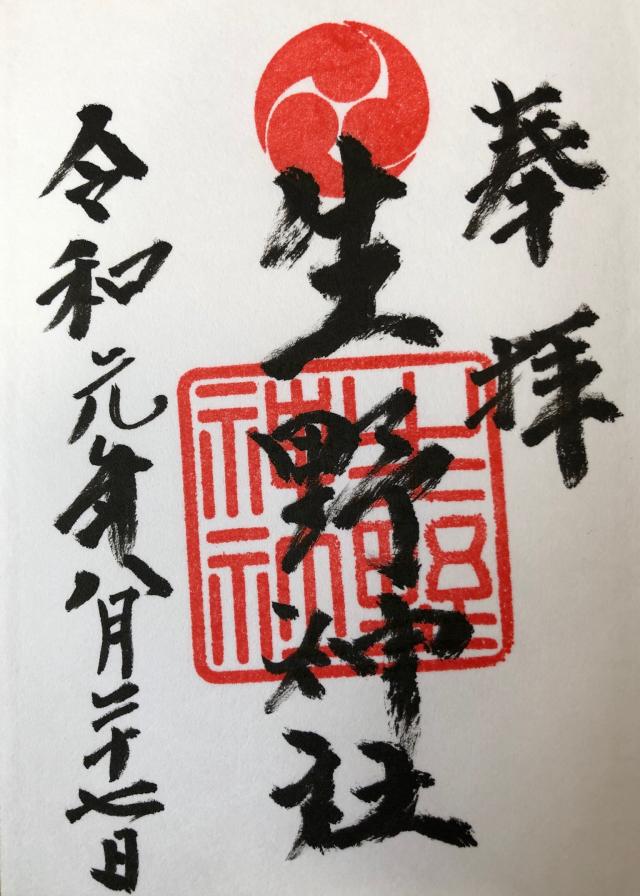 奉拝
生野神社
令和元年八月二十七日